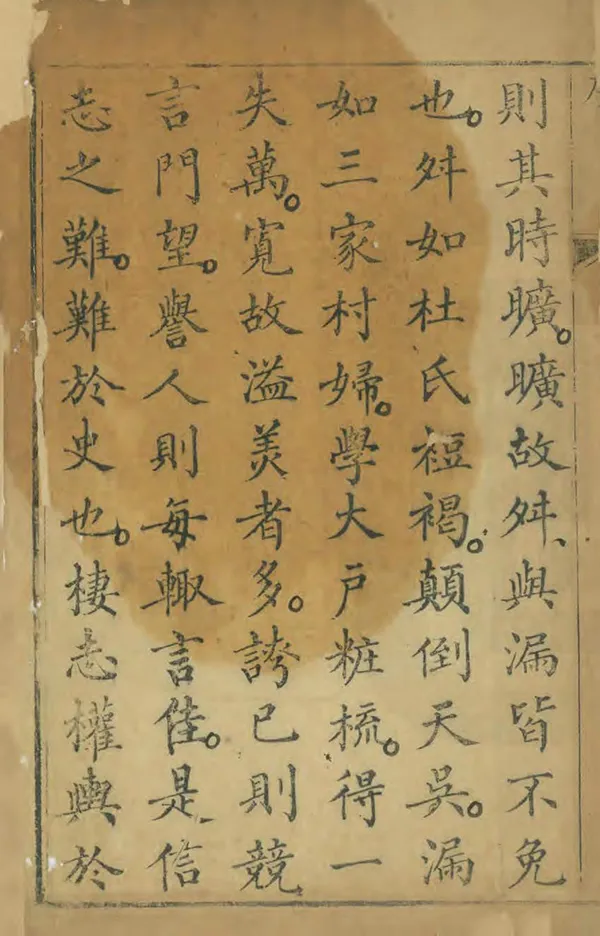 則其時曠。曠故舛、與漏皆不免
也。舛如杜氏裋褐。顛倒天吳。漏
如三家村婦。學大戶粧梳。得一
失萬。寬故溢美者多。誇已則競
言門望。譽人則每輙言佳。是信
志之難。難於史也。棲志權輿於